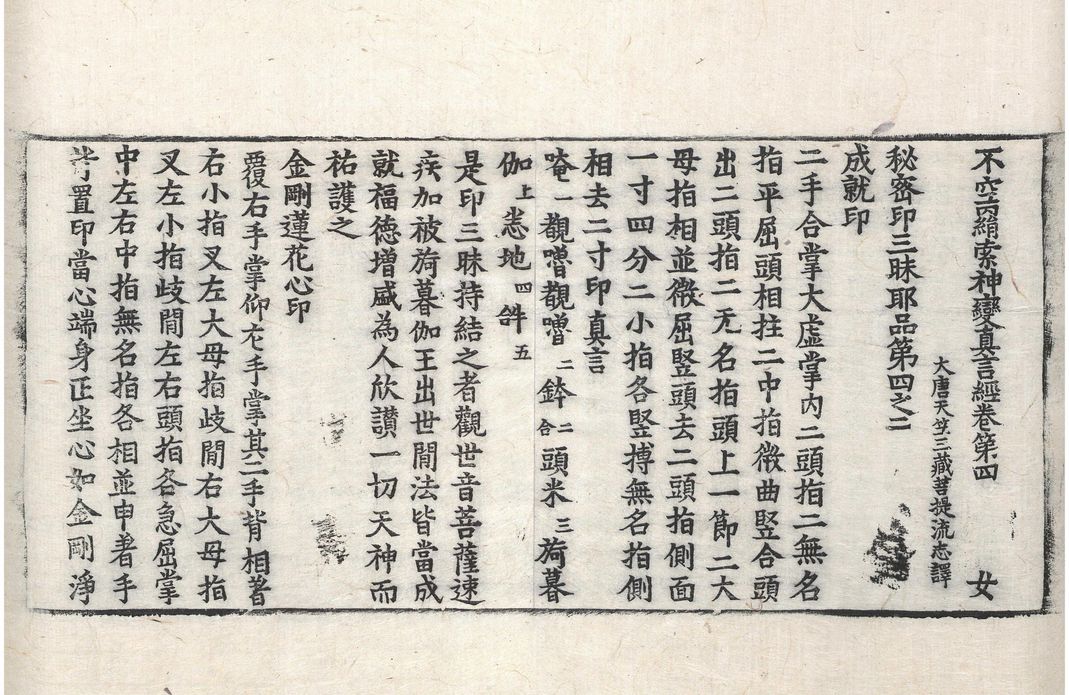 不空羂索神變真言經卷第四 女
大唐天竺三藏菩提流志譯
秘密印三昧耶品第四之二
成就印
二手合掌大虛掌內二頭指二無名
指平屈頭相拄二中指微曲竪合頭
出二頭指二无名指頭上一節二大
母指相並微屈竪頭去二頭指側面
一寸四分二小指各竪搏無名指側
相去二寸印真言
唵一觀嚕觀嚕二鉢二合頭米三旖暮
伽上悉地四𤙖五
是印三昧持結之者觀世音菩薩速
疾加被旖暮伽王出世閒法皆當成
就福德增盛為人欣讚一切天神而
祐護之
金剛蓮花心印
覆右手掌仰左手掌其二手背相著
右小指叉左大母指歧閒右大母指
叉左小指歧閒左右頭指各急屈掌
中左右中指無名指各相並申著手
背置印當心端身正坐心如金剛淨